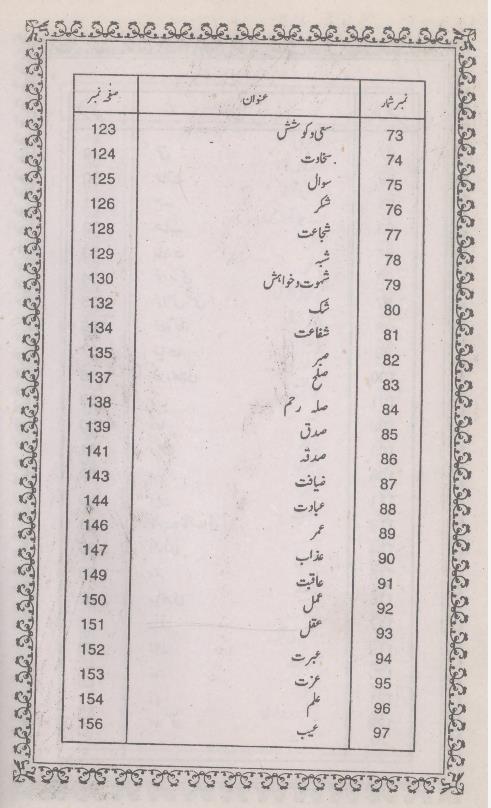 نمبر شمار عنوان صفحہ نمبر
73 سعی و کوشش 123
74 سخاوت 124
75 سوال 125
76 شکر 126
77 شجاعت 128
78 شبہ 129
79 شہوت و خواہش 130
80 شک 132
81 شفاعت 134
82 صبر 135
83 صلح 137
84 صلہ رحم 138
85 صدق 139
86 صدقہ 141
87 ضیافت 143
88 عبادت 144
89 عمر 146
90 عذاب 147
91 عاقبت 149
92 عمل 150
93 عقل 151
94 عبرت 152
95 عزت 153
96 علم 154
97 عیب 156